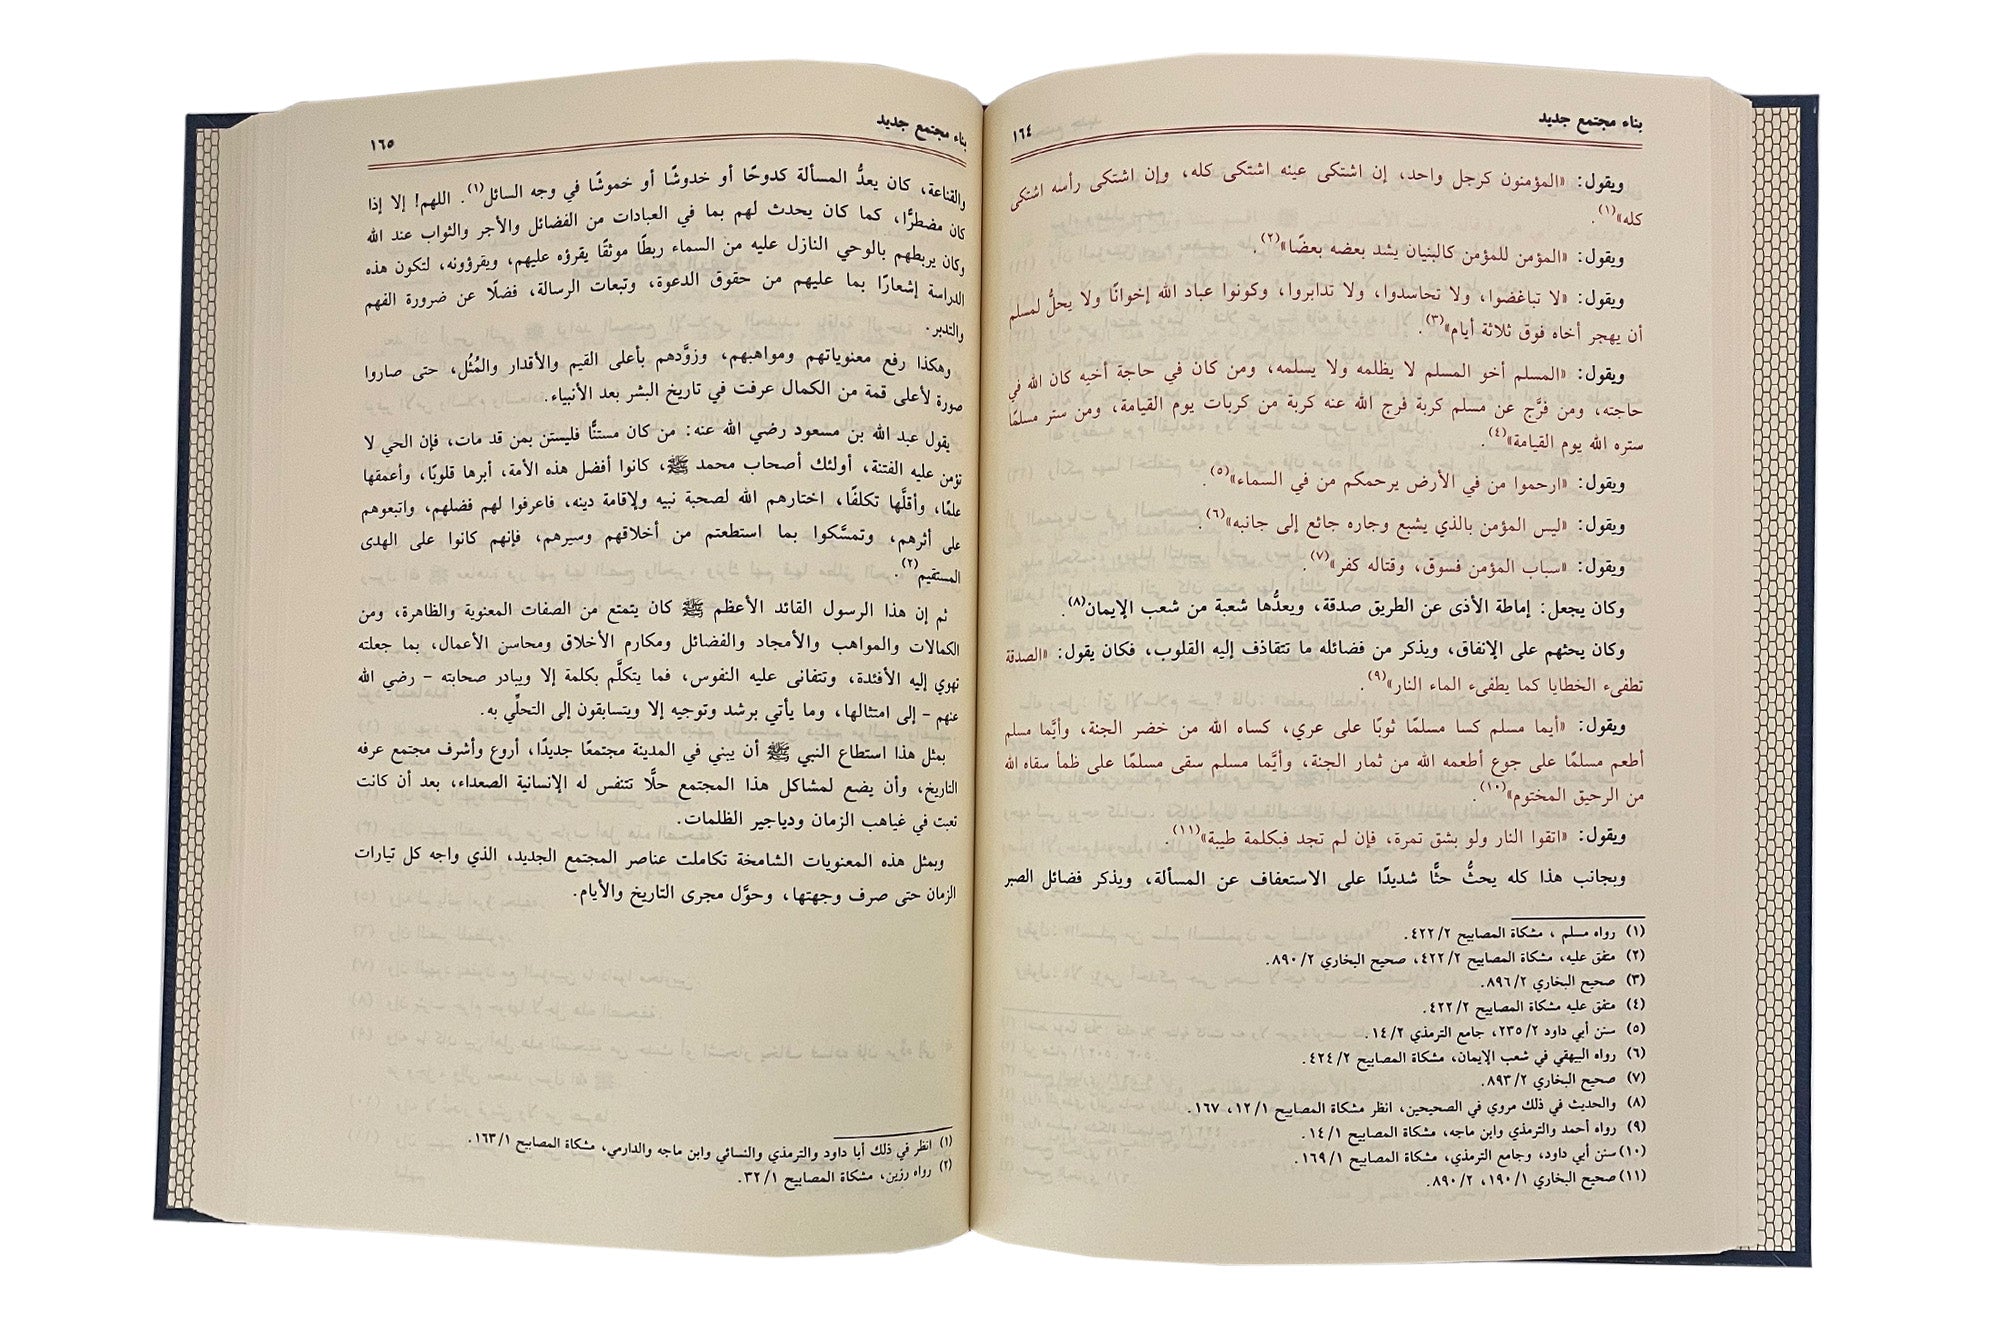 بناء مجتمع جديد
١٦٤
ويقول: «المؤمنون كرجل واحد، إن اشتكى عينه اشتكى كله، وإن اشتكى رأسه اشتكى
كله»(١).
ويقول: «المؤمن للمؤمن كالبنيان يشد بعضه بعضًا»(٢).
ويقول: «لا تباغضوا، ولا تحاسدوا، ولا تدابروا، وكونوا عباد الله إخوانًا ولا يحلُّ لمسلم
أن يهجر أخاه فوق ثلاثة أيام»(٣).
ويقول: «المسلم أخو المسلم لا يظلمه ولا يسلمه، ومن كان في حاجة أخيه كان الله في
حاجته، ومن فرَّج عن مسلم كربة فرج الله عنه كربة من كربات يوم القيامة، ومن ستر مسلمًا
ستره الله يوم القيامة»(٤).
ويقول: «ارحموا من في الأرض يرحمكم من في السماء»(٥).
ويقول: «ليس المؤمن بالذي يشبع وجاره جائع إلى جانبه»(٦).
ويقول: «سباب المؤمن فسوق، وقتاله كفر»(٧).
وكان يجعل: إماطة الأذى عن الطريق صدقة، ويعدُّها شعبة من شعب الإيمان(٨).
وكان يحثهم على الإنفاق، ويذكر من فضائله ما تتقاذف إليه القلوب، فكان يقول: «الصدقة
تطفىء الخطايا كما يطفىء الماء النار»(٩).
ويقول: «أيما مسلم كسا مسلمًا ثوبًا على عري، كساه الله من خضر الجنة، وأيَّما مسلم
أطعم مسلمًا على جوع أطعمه الله من ثمار الجنة، وأيَّما مسلم سقى مسلمًا على ظمأ سقاه الله
من الرحيق المختوم»(١٠).
ويقول: «اتقوا النار ولو بشق تمرة، فإن لم تجد فبكلمة طيبة»(١١).
وبجانب هذا كله يحثُّ حثًّا شديدًا على الاستعفاف عن المسألة، ويذكر فضائل الصبر
(١) رواه مسلم ، مشكاة المصابيح ٤٢٢/٢.
(٢) متفق عليه، مشكاة المصابيح ٤٢٢/٢، صحيح البخاري ٨٩٠/٢.
(٣) صحيح البخاري ٨٩٦/٢.
(٤) متفق عليه مشكاة المصابيح ٤٢٢/٢.
(٥) سنن أبي داود ٢٣٥/٢، جامع الترمذي ١٤/٢.
(٦) رواه البيهقي في شعب الإيمان، مشكاة المصابيح ٤٢٤/٢.
(٧) صحيح البخاري ٨٩٣/٢.
(٨) والحديث في ذلك مروي في الصحيحين، انظر مشكاة المصابيح ١٢/١، ١٦٧.
(٩) رواه أحمد والترمذي وابن ماجه، مشكاة المصابيح ١٤/١.
(١٠) سنن أبي داود، وجامع الترمذي، مشكاة المصابيح ١٦٩/١.
(١١) صحيح البخاري ١٩٠/١، ٨٩٠/٢.
بناء مجتمع جديد
١٦٥
والقناعة، كان يعدُّ المسألة كدوحًا أو خدوشًا أو خموشًا في وجه السائل(١). اللهم! إلا إذا
كان مضطرًا، كما كان يحدث لهم بما في العبادات من الفضائل والأجر والثواب عند الله
وكان يربطهم بالوحي النازل عليه من السماء ربطًا موثقًا يقرؤه عليهم، ويقرؤونه، لتكون هذه
الدراسة إشعارًا بما عليهم من حقوق الدعوة، وتبعات الرسالة، فضلًا عن ضرورة الفهم
والتدبر.
وهكذا رفع معنوياتهم ومواهبهم، وزوَّدهم بأعلى القيم والأقدار والمُثُل، حتى صاروا
صورة لأعلى قمة من الكمال عرفت في تاريخ البشر بعد الأنبياء.
يقول عبد الله بن مسعود رضي الله عنه: من كان مستنًّا فليستن بمن قد مات، فإن الحي لا
تؤمن عليه الفتنة، أولئك أصحاب محمد ﷺ، كانوا أفضل هذه الأمة، أبرها قلوبًا، وأعمقها
علمًا، وأقلَّها تكلفًا، اختارهم الله لصحبة نبيه ولإقامة دينه، فاعرفوا لهم فضلهم، واتبعوهم
على أثرهم، وتمسَّكوا بما استطعتم من أخلاقهم وسيرهم، فإنهم كانوا على الهدى
المستقيم(٢).
ثم إن هذا الرسول القائد الأعظم ﷺ كان يتمتع من الصفات المعنوية والظاهرة، ومن
الكمالات والمواهب والأمجاد والفضائل ومكارم الأخلاق ومحاسن الأعمال، بما جعلته
تهوي إليه الأفئدة، وتتفانى عليه النفوس، فما يتكلَّم بكلمة إلا ويبادر صحابته - رضي الله
عنهم - إلى امتثالها، وما يأتي برشد وتوجيه إلا ويتسابقون إلى التحلِّي به.
بمثل هذا استطاع النبي ﷺ أن يبني في المدينة مجتمعًا جديدًا، أروع وأشرف مجتمع عرفه
التاريخ، وأن يضع لمشاكل هذا المجتمع حلًّا تتنفس له الإنسانية الصعداء، بعد أن كانت
تعبت في غياهب الزمان ودياجير الظلمات.
وبمثل هذه المعنويات الشامخة تكاملت عناصر المجتمع الجديد، الذي واجه كل تيارات
الزمان حتى صرف وجهتها، وحوَّل مجرى التاريخ والأيام.
(١) انظر في ذلك أبا داود والترمذي والنسائي وابن ماجه والدارمي، مشكاة المصابيح ١٦٣/١.
(٢) رواه رزين، مشكاة المصابيح ٣٢/١.